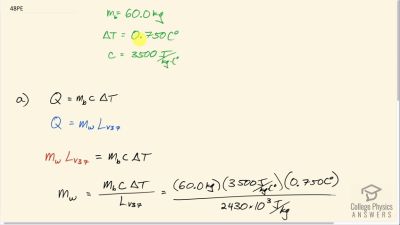 48PE
m_b = 60.0 kg
ΔT = 0.750 C°
c = 3500 J/kg C°
a) Q = m_b c ΔT
Q = m_w L_v37
m_w L_v37 = m_b c ΔT
m_w = m_b c ΔT / L_v37 = (60.0 kg)(3500 J/kg C°)(0.750 C°) / 2430×10³ J/kg
College Physics
ANSWERS